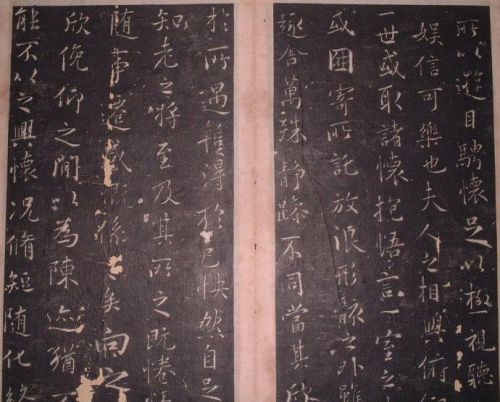 所以遊目騁懷足以極視聽
娛信可樂也夫人之相與俯
一世或取諸懷抱悟言一室之
或因寄所託放浪形骸之外雖
趣舍萬殊靜躁不同當其欣
於所遇暫得於己快然自足
知老之將至及其所之既惓情
隨事遷感慨係之矣向之
欣俛仰之閒以為陳迹猶不
能不以之興懷況脩短隨化終